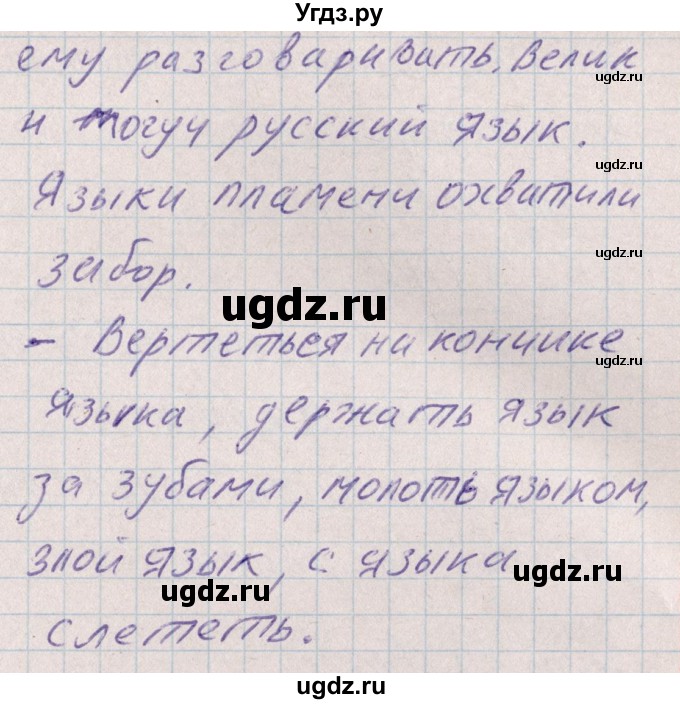 Угдз.ру
ему разговаривать. Велик
ugdz.ru
и могуч русский язык.
ugdz.ru
Языки пламени охватили
ugdz.ru
забор.
ugdz.ru
- Вертеться на кончике
ugdz.ru
языка, держать язык
за зубами, молоть языком,
ugdz.ru
злой язык, с языка
ugdz.ru
ugdz.ru
слететь.
ugdz.ru